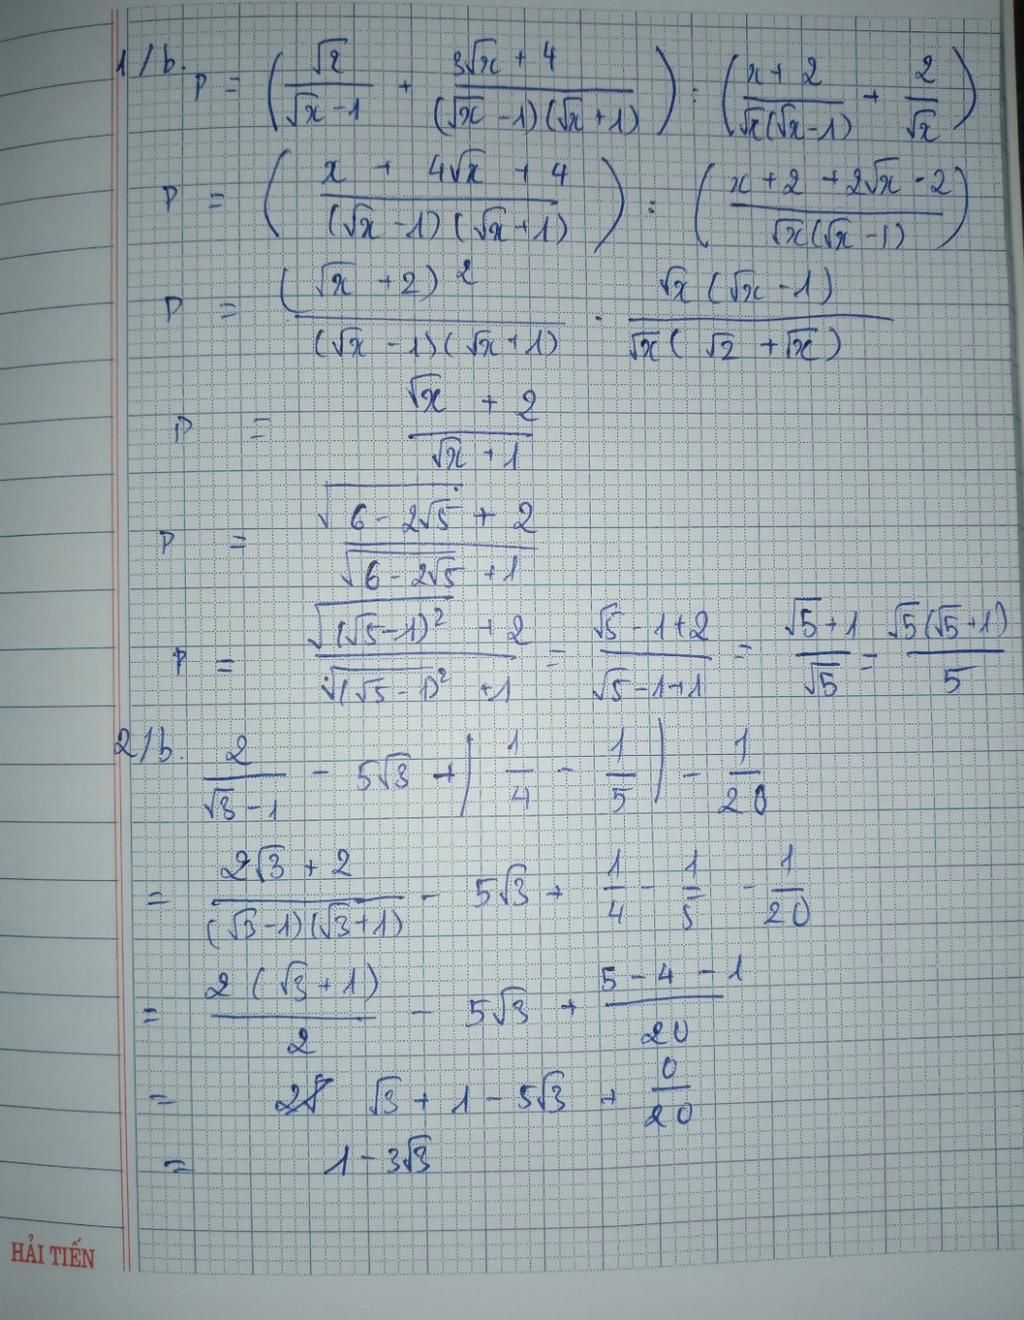 1/b. P = (√2/(√x - 1) + (3√x + 4)/((√x - 1)(√x + 1))) : ((x + 2)/(√x(√x - 1)) + 2/√x)
P = ((x + 4√x + 4)/((√x - 1)(√x + 1))) : ((x + 2 + 2√x - 2)/(√x(√x - 1)))
P = (√x + 2)²/((√x - 1)(√x + 1)) · √x(√x - 1)/(√x(√2 + √x))
P = (√x + 2)/(√x + 1)
P = (√(6 - 2√5) + 2)/(√(6 - 2√5) + 1)
P = (√((√5 - 1)²) + 2)/(√((√5 - 1)²) + 1) = (√5 - 1 + 2)/(√5 - 1 + 1) = (√5 + 1)/√5 = √5(√5 + 1)/5
2/b. 2/(√3 - 1) - 5√3 + |1/4 - 1/5| - 1/20
= (2√3 + 2)/((√3 - 1)(√3 + 1)) - 5√3 + 1/4 - 1/5 - 1/20
= 2(√3 + 1)/2 - 5√3 + (5 - 4 - 1)/20
= √3 + 1 - 5√3 + 0/20
= 1 - 3√3
HẢI TIẾN